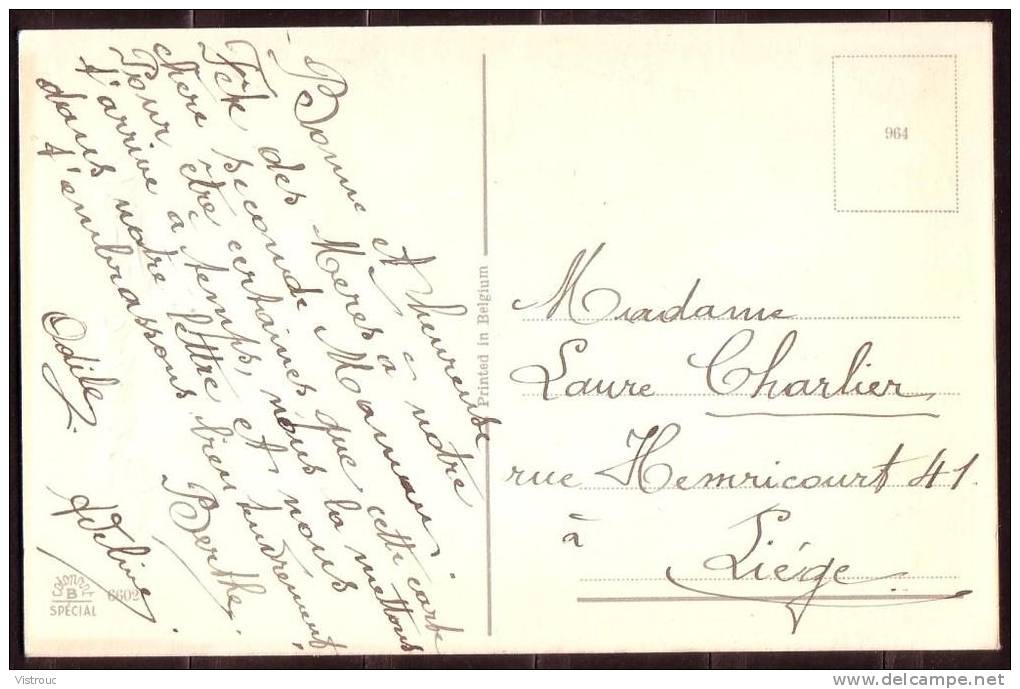 Bonne et heureuse
Fête des Mères à notre
chère seconde Maman.
Pour être certaines que cette carte
t'arrive à temps, nous la mettons
dans notre lettre et nous
t'embrassons bien tendrement,
Berthe.
Odile.
Adeline.
COLORPRINT
B
SPÉCIAL 6602
Printed in Belgium
964
Madame
Laure Charlier
rue Hemricourt 41.
à
Liége
Vistrouc
delcampe.net